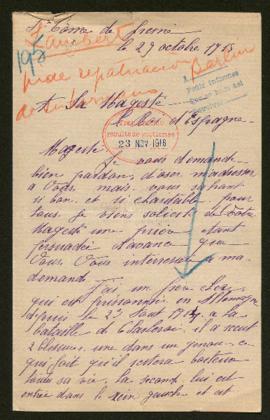 St Côme de fresné
le 29 octobre 1915
Lambert
198
pide repatriacion
Berlin
de su hermano
Pedir informes
A Sa Majesté
le Roi d'Espagne
23 NOV. 1916
Majesté
Je vous demande
bien pardon, d'oser m'adresser
à Vous, mais vous sachant
si bon et si charitable pour
tous, je viens solliciter de Votre
Majesté une prière étant
persuadée d'avance que
Vous Vous intéresserez à ma
demande.
J'ai un frère cher
qui est prisonnier en Allemagne
depuis le 23 Août 1914, à la
bataille de Charleroi, il a reçut
2 blessures, une dans un genou, ce
qui fait qu'il restera boiteux
toute sa vie, la seconde lui est
entrée dans le sein gauche et est